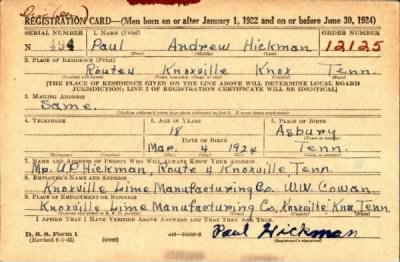 REGISTRATION CARD—(Men born on or after January 1, 1922 and on or before June 30, 1924)
SERIAL NUMBER 1. NAME (Print) ORDER NUMBER
N 494 Paul Andrew Hickman 12125
(First) (Middle) (Last)
2. PLACE OF RESIDENCE (Print)
Route 4 Knoxville Knox Tenn.
[THE PLACE OF RESIDENCE GIVEN ON THE LINE ABOVE WILL DETERMINE LOCAL BOARD
JURISDICTION; LINE 2 OF REGISTRATION CERTIFICATE WILL BE IDENTICAL]
3. MAILING ADDRESS
Same.
4. TELEPHONE 5. AGE IN YEARS 6. PLACE OF BIRTH
18 Asbury
DATE OF BIRTH
Mar. 4 1924 Tenn.
7. NAME AND ADDRESS OF PERSON WHO WILL ALWAYS KNOW YOUR ADDRESS
Mr. U.P. Hickman, Route 4 Knoxville, Tenn.
8. EMPLOYER'S NAME AND ADDRESS
Knoxville Lime Manufacturing Co. W.W. Cowan.
9. PLACE OF EMPLOYMENT OR BUSINESS
Knoxville Lime Manufacturing Co. Knoxville Knox Tenn.
I AFFIRM THAT I HAVE VERIFIED ABOVE ANSWERS AND THAT THEY ARE TRUE.
D. S. S. Form 1
(Revised 6-1-42) (over) Paul Hickman
(Registrant's signature)